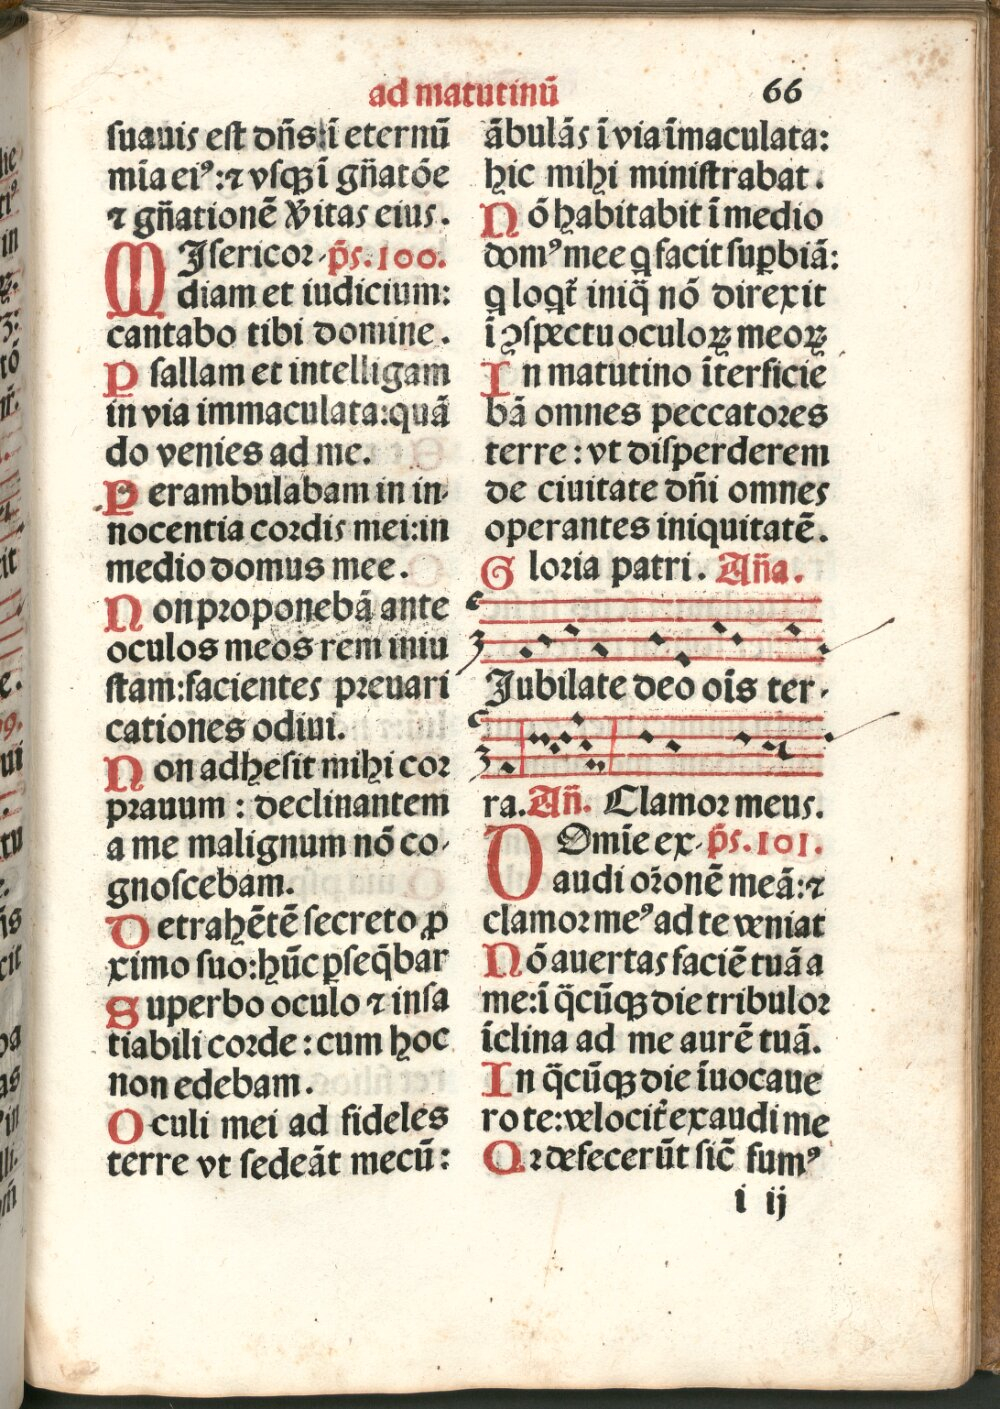 ad matutinū
66
suauis est dn̄s:ī eternū
mīa eiꝰ:⁊ vsqꝫ ī gn̄atōe
⁊ gn̄ationē v̄itas eius.
MIsericor-ps̄.100.
diam et iudicium:
cantabo tibi domine.
Psallam et intelligam
in via immaculata:quā
do venies ad me.
Perambulabam in in-
nocentia cordis mei:in
medio domus mee.
Non proponebā ante
oculos meos rem iniu
stam:facientes preuari
cationes odiui.
Non adhesit mihi cor
prauum: declinantem
a me malignum nō co-
gnoscebam.
Detrahētē secreto ꝓ
ximo suo:hūc ꝑseq̄bar
Superbo oculo ⁊ insa
tiabili corde: cum hoc
non edebam.
Oculi mei ad fideles
terre vt sedeāt mecū:
ābulās ī via īmaculata:
hic mihi ministrabat.
Nō habitabit ī medio
domꝰ mee q facit suꝑbiā:
q loqt̄ iniq̄ nō direxit
ī ꝯspectu oculoꝝ meoꝝ
In matutino īterficie
bā omnes peccatores
terre: vt disperderem
de ciuitate dn̄i omnes
operantes iniquitatē.
Gloria patri. An̄a.
Jubilate deo oīs ter-
ra. An̄. Clamor meus.
DOmīe ex-ps̄.101.
audi or̄onē meā:⁊
clamor meꝰ ad te veniat
Nō auertas faciē tuā a
me:ī q̄cūqꝫ die tribulor
īclina ad me aurē tuā.
In q̄cūqꝫ die īuocaue
ro te:velocit̄ exaudi me
Qꝛ defecerūt sic̄ fumꝰ
i ij